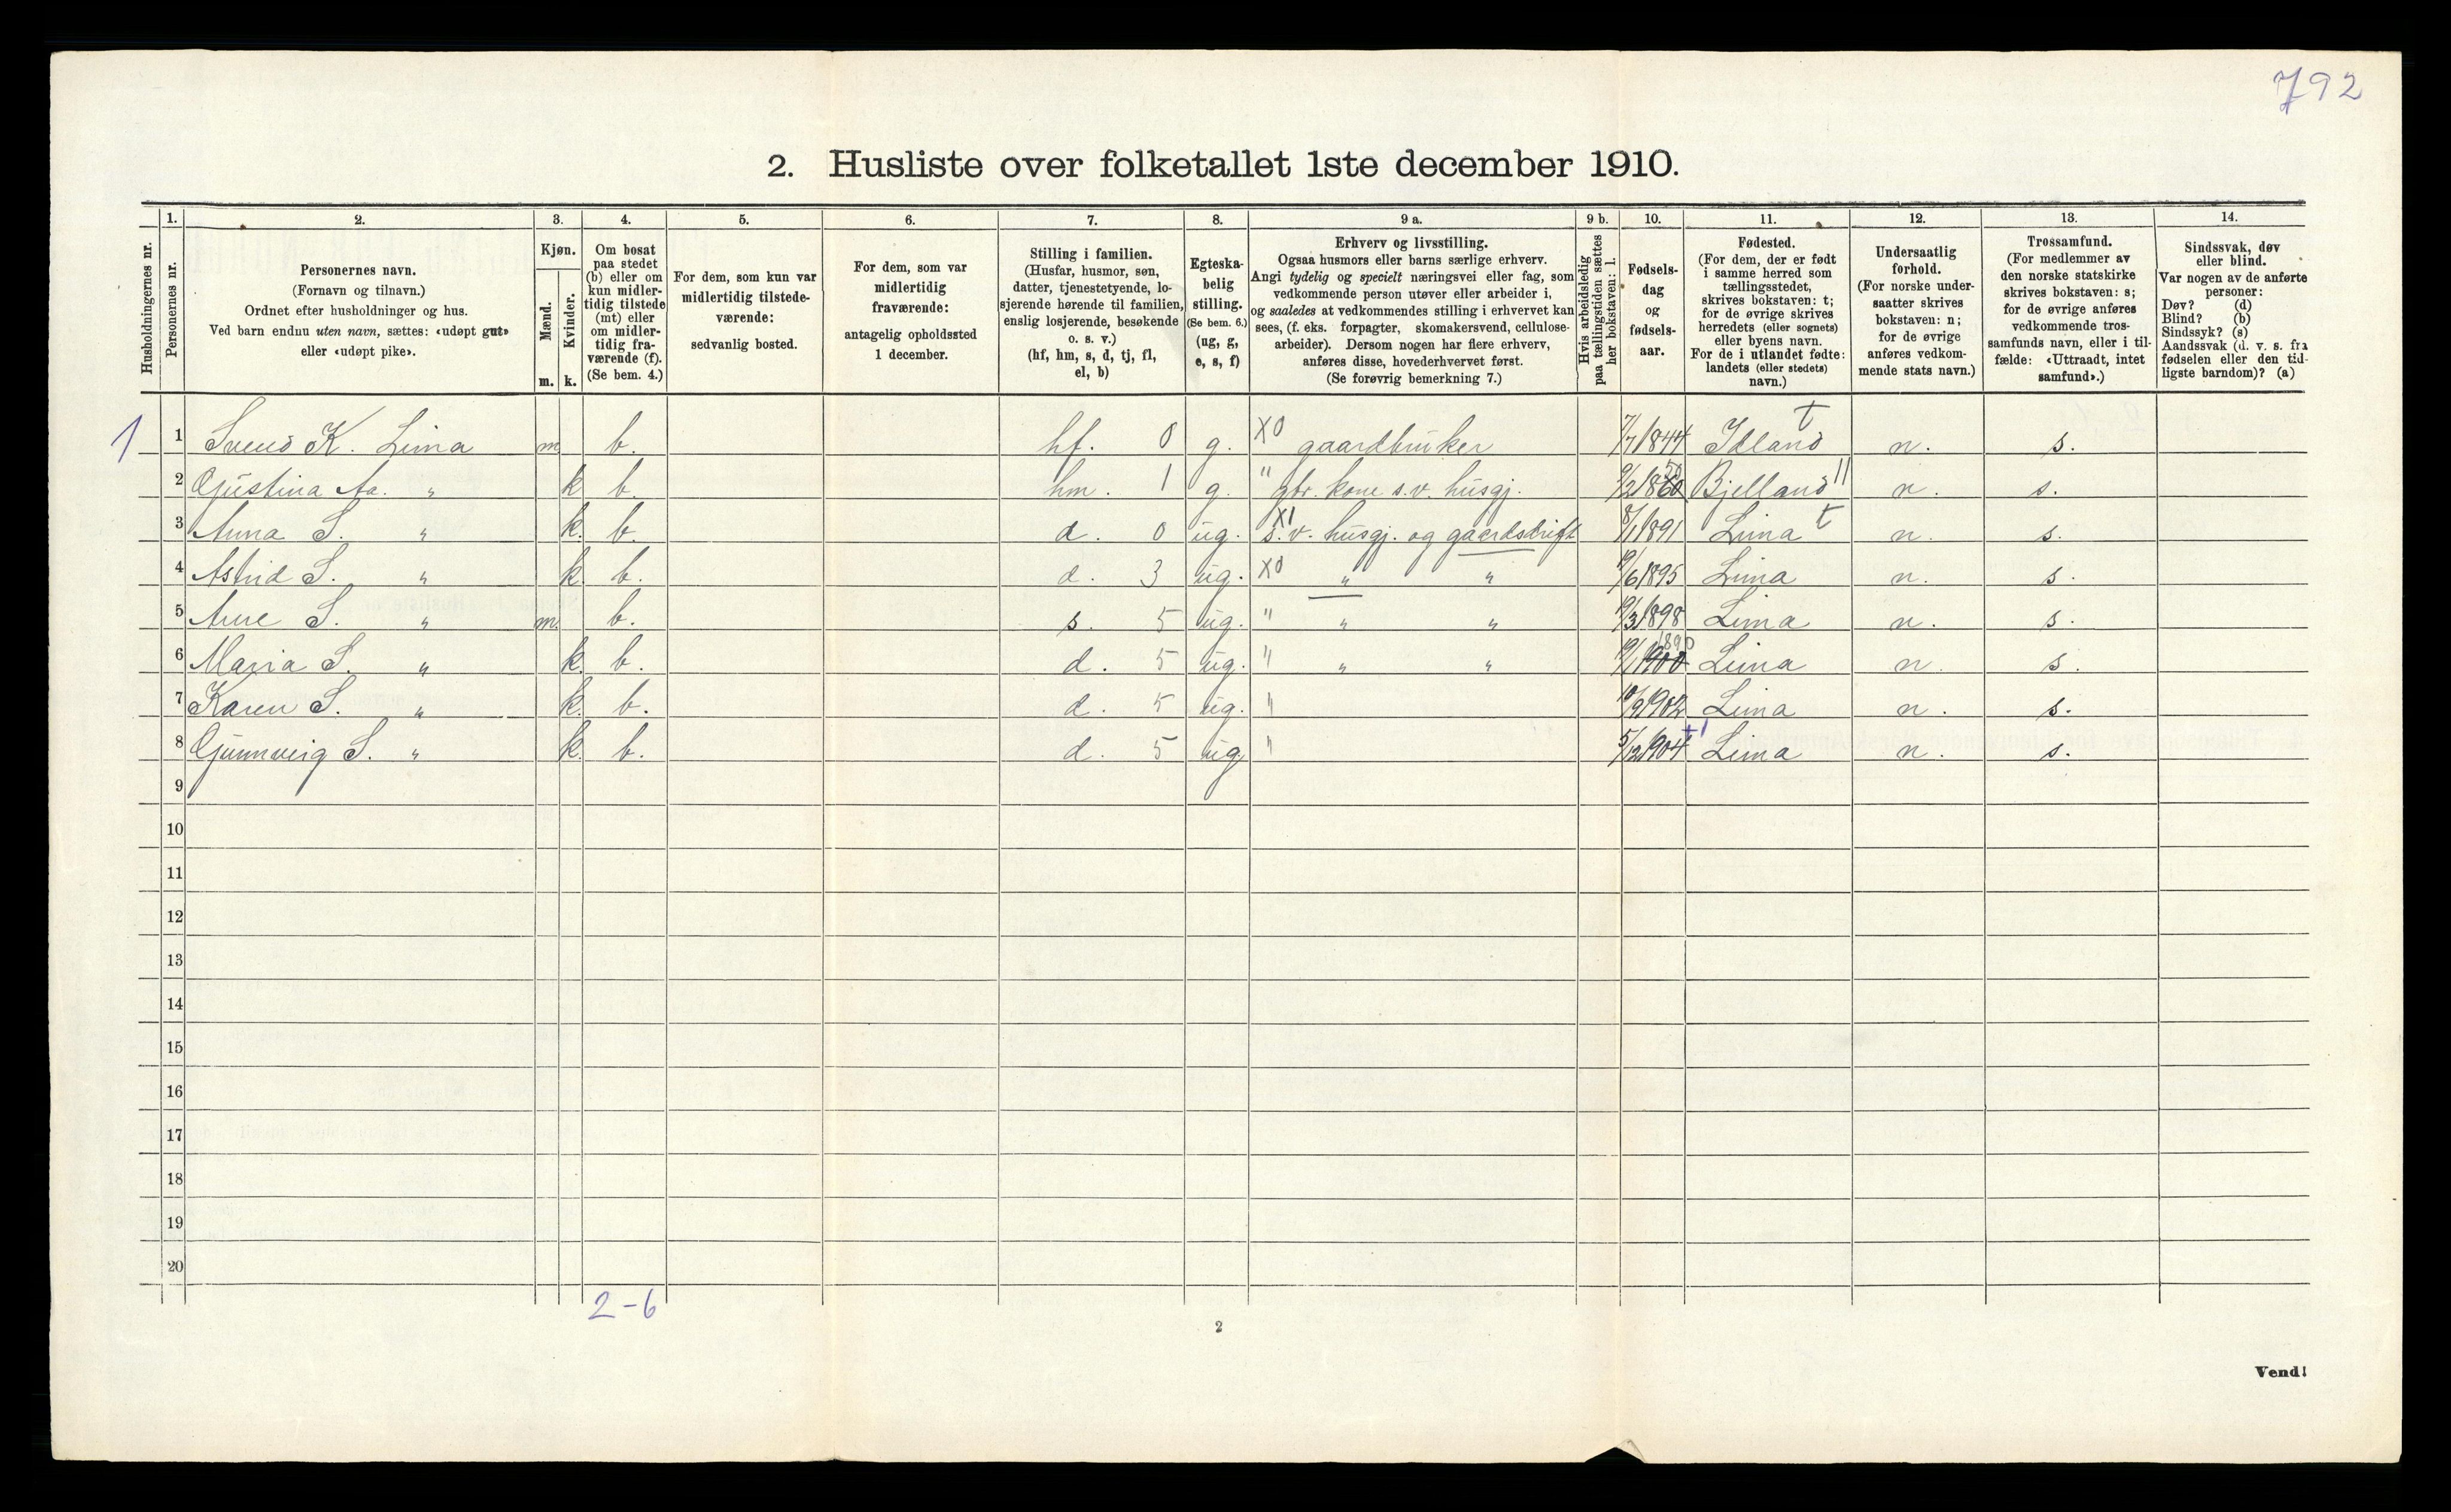 792
2. Husliste over folketallet 1ste december 1910.
Husholdningernes nr.
1.
Personernes nr.
2.
Personernes navn.
(Fornavn og tilnavn.)
Ordnet efter husholdninger og hus.
Ved barn endnu uten navn, sættes: «udøpt gut»
eller «udøpt pike».
3.
Kjøn.
Mænd.
Kvinder.
m. k.
4.
Om bosat
paa stedet
(b) eller om
kun midler-
tidig tilstede
(mt) eller
om midler-
tidig fra-
værende (f).
(Se bem. 4.)
5.
For dem, som kun var
midlertidig tilstede-
værende:
sedvanlig bosted.
6.
For dem, som var
midlertidig
fraværende:
antagelig opholdssted
1 december.
7.
Stilling i familien.
(Husfar, husmor, søn,
datter, tjenestetyende, lo-
sjerende hørende til familien,
enslig losjerende, besøkende
o. s. v.)
(hf, hm, s, d, tj, fl,
el, b)
8.
Egteska-
belig
stilling.
(Se bem. 6.)
(ug, g,
e, s, f)
9 a.
Erhverv og livsstilling.
Ogsaa husmors eller barns særlige erhverv.
Angi tydelig og specielt næringsvei eller fag, som
vedkommende person utøver eller arbeider i,
og saaledes at vedkommendes stilling i erhvervet kan
sees, (f. eks. forpagter, skomakersvend, cellulose-
arbeider). Dersom nogen har flere erhverv,
anføres disse, hovederhvervet først.
(Se forøvrig bemerkning 7.)
9 b.
Hvis arbeidsledig
paa tællingstiden sættes
her bokstaven: l.
10.
Fødsels-
dag
og
fødsels-
aar.
11.
Fødested.
(For dem, der er født
i samme herred som
tællingsstedet,
skrives bokstaven: t;
for de øvrige skrives
herredets (eller sognets)
eller byens navn.
For de i utlandet fødte:
landets (eller stedets)
navn.)
12.
Undersaatlig
forhold.
(For norske under-
saatter skrives
bokstaven: n;
for de øvrige
anføres vedkom-
mende stats navn.)
13.
Trossamfund.
(For medlemmer av
den norske statskirke
skrives bokstaven: s;
for de øvrige anføres
vedkommende tros-
samfunds navn, eller i til-
fælde: «Uttraadt, intet
samfund».)
14.
Sindssvak, døv
eller blind.
Var nogen av de anførte
personer:
Døv? (d)
Blind? (b)
Sindssyk? (s)
Aandssvak (d. v. s. fra
fødselen eller den tid-
ligste barndom)? (a)
1 1 Svend K. Lima m b. hf. 0 g. X0 gaardbruker 7/7 1844 Idland t n. s.
2 Gjustina Aa. " k b. hm. 1 g. " gbr. kone s.v. husgj. 9/2 18 50 Bjelland 11 n. s.
3 Anna S. " k. b. d. 0 ug. X1 s.v. husgj. og gaardsdrift 8/1 1891 Lima t n. s.
4 Astrid S. " k. b. d. 3 ug. X0 " " /6 1895 Lima n. s.
5 Arne S. " m. b. s. 5 ug. " " " /3 1898 Lima n. s.
6 Maria S. " k. b. d. 5 ug. " " " Lima n. s.
7 Karen S. " k. b. d. 5 ug. " 10/9 1902 Lima n. s.
8 Gunnveig S. " k. b. d. 5 ug " 5/12 1904 +1 Lima n. s.
9
10
11
12
13
14
15
16
17
18
19
20
2-6
2
Vend!